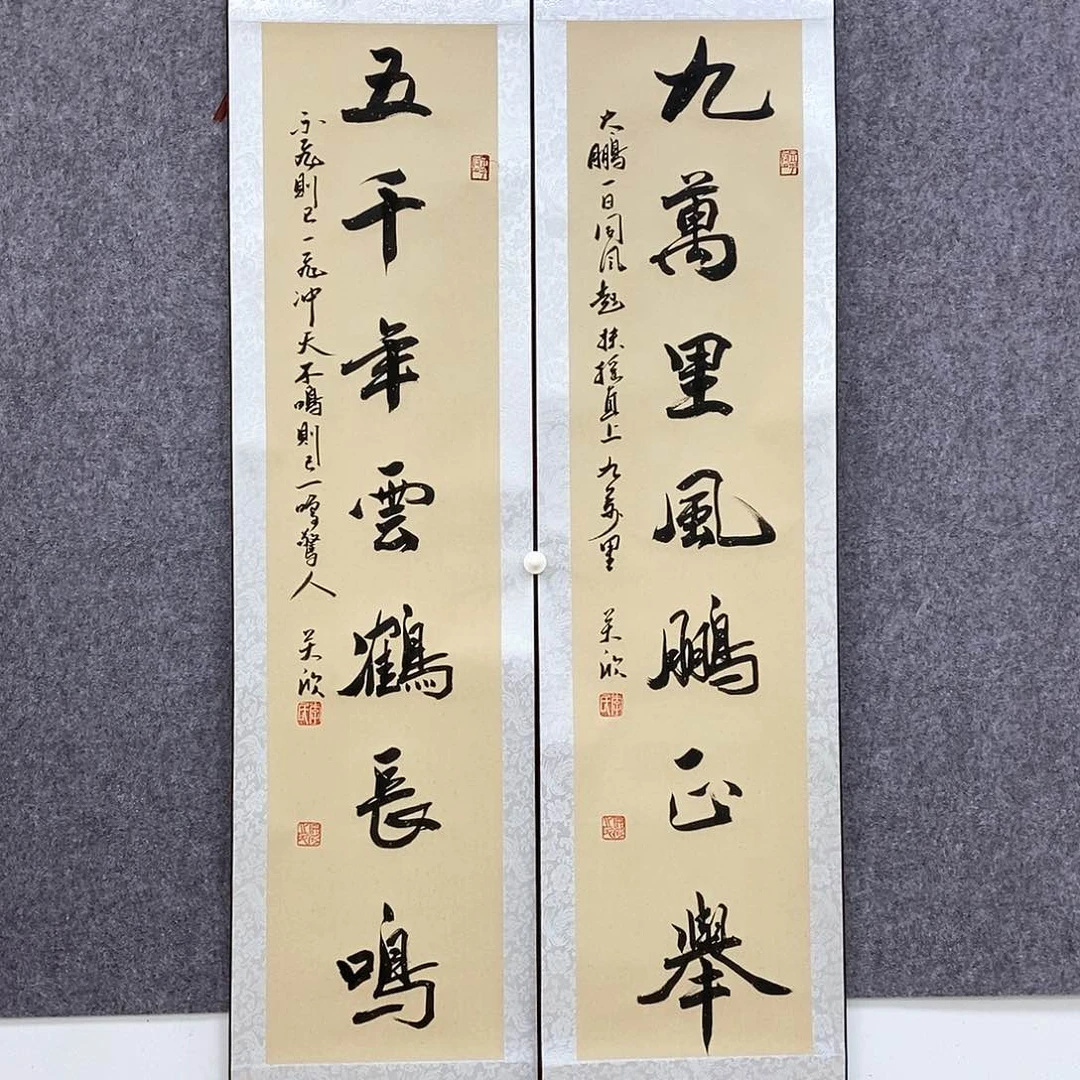 九萬里風鵬正舉
大鵬一日同风起扶搖直上九万里
美欣
五千年雲鶴長鳴
不飛則已一飛冲天不鳴則已一鳴驚人
美欣